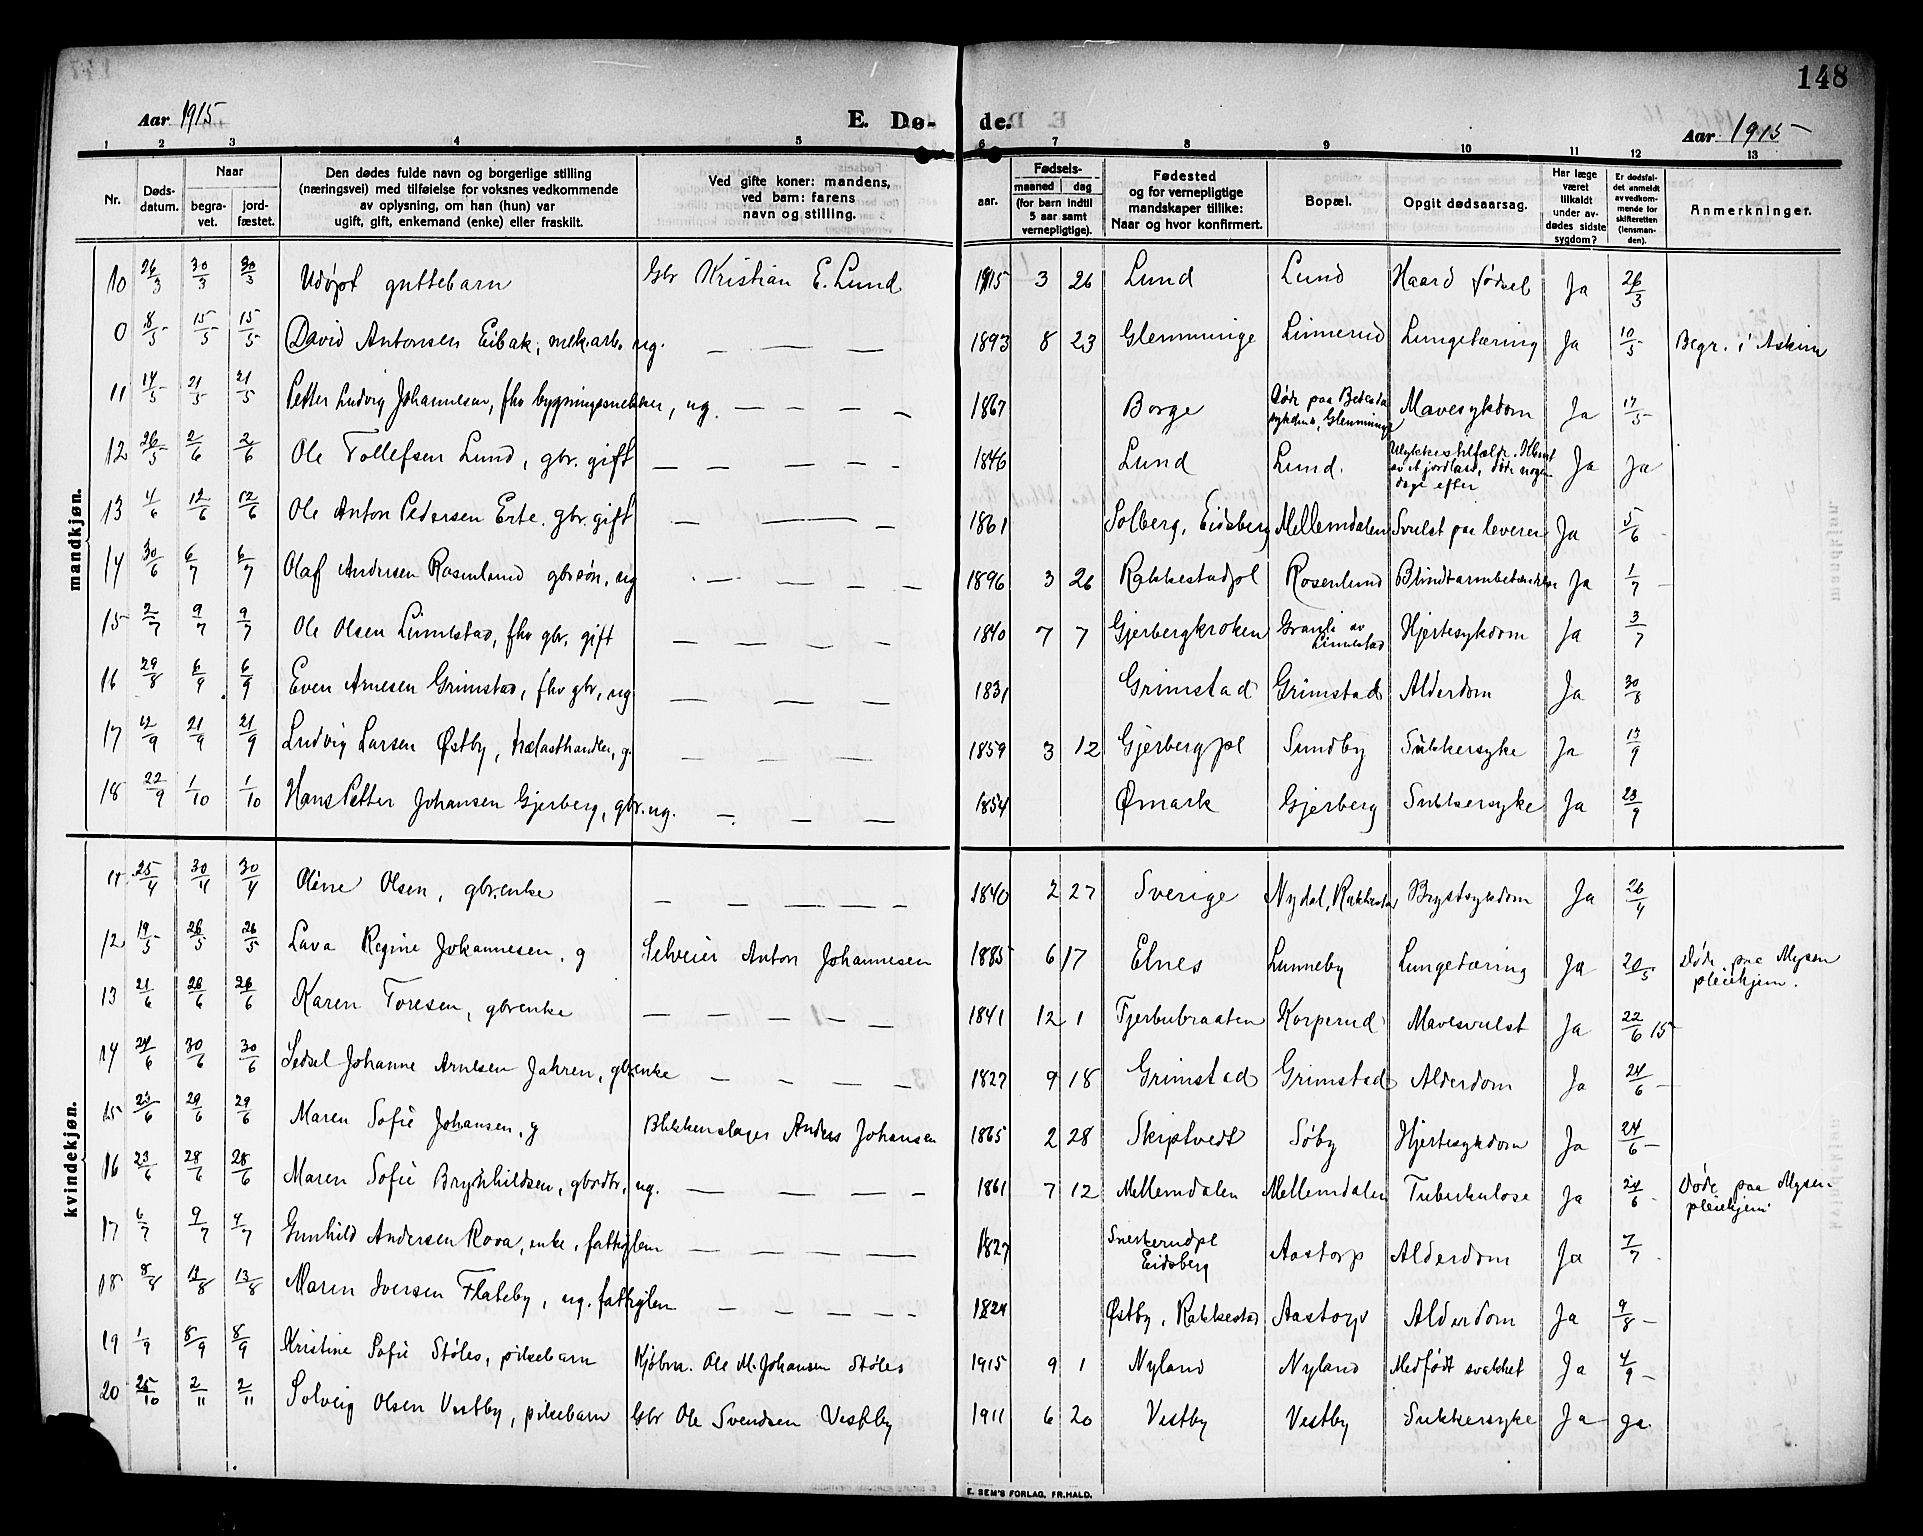 148
Aar 1915 E. Dø- de. Aar 1915
1 2 3 4 5 6 7 8 9 10 11 12 13
Nr. Døds-datum. Naar begra-vet. jord-fæstet. Den dødes fulde navn og borgerlige stilling (næringsvei) med tilføielse for voksnes vedkommende av oplysning, om han (hun) var ugift, gift, enkemand (enke) eller fraskilt. Ved gifte koner: mandens, ved barn: farens navn og stilling. Fødsels- aar. maaned dag (for barn indtil 5 aar samt vernepligtige). Fødested og for vernepligtige mandskaper tillike: Naar og hvor konfirmert. Bopæl. Opgit dødsaarsag. Har læge været tilkaldt under av-dødes sidste sygdom? Er dødsfal-det anmeldt av vedkom-mende for skifteretten (lensman-den). Anmerkninger.
mandkjøn.
10 26/3 30/3 30/3 Udøpt guttebarn Gbr Kristian E. Lund 1915 3 26 Lund Lund Haard fødsel Ja 26/3
0 8/5 15/5 15/5 David Antonsen Eibak, mek.arb. ug. — — — 1893 8 23 Glemminge Linnerud Lungetæring Ja 10/5 Begr. i Askim
11 14/5 21/5 21/5 Petter Ludvig Johannesen, fhv bygningssnekker, ug. — — — — 1867 Borge Døde paa Betesta sykehus, Glemminge Mavesykdom Ja 17/5
12 26/5 2/6 2/6 Ole Tollefsen Lund, gbr. gift — — — — 1846 Lund Lund. Ulykkestilfælde. Klemt av et jordlass, døde nogen dage efter Ja Ja
13 4/6 12/6 12/6 Ole Anton Pedersen Erte. gbr. gift — — — 1861 Solberg, Eidsberg Mellemdalen Svulst paa leveren Ja 5/6
14 30/6 6/7 6/7 Olaf Andersen Rosenlund gbrsøn, ug — — — — 1896 3 26 Rakkestadpl Rosenlund Blindtarmbetændelse Ja 1/7
15 2/7 9/7 9/7 Ole Olsen Linnestad, fhv gbr. gift — — — — 1840 7 7 Gjerbergkroken Granli av Linnestad Hjertesykdom Ja 3/7
16 29/8 6/9 6/9 Even Arnesen Grimstad, fhv gbr, ug — — — 1831 Grimstad Grimstad Alderdom Ja 30/8
17 12/9 21/9 21/9 Ludvig Larsen Østby, trælasthandler, g. — — — 1859 3 12 Gjerbergpl Sundby Sukkersyke Ja 13/9
18 22/9 1/10 1/10 Hans Petter Johansen Gjerberg, gbr. ug. — — — 1854 Ømark Gjerberg Sukkersyke Ja 23/9
kvindekjøn.
11 25/4 30/4 30/4 Oline Olsen, gbrenke — — — — — 1840 2 27 Sverige Nydal, Rakkestad Brystsykdom Ja 26/4
12 19/5 26/5 26/5 Lava Regine Johannesen, g Selveier Anton Johannesen 1885 6 17 Elnes Lunneby Lungetæring Ja 20/5 Døde paa Mysen pleiehjem.
13 21/6 26/6 26/6 Karen Toresen, gbrenke — — — — 1841 12 1 Tjerbubraaten Korperud Mavesvulst Ja 22/6 15
14 24/6 30/6 30/6 Sedsel Johanne Arnesen Jahren, gbrenke — — — — 1827 9 18 Grimstad Grimstad Alderdom Ja 24/6
15 23/6 29/6 29/6 Maren Sofie Johansen, g Blikkenslager Anders Johansen 1865 2 28 Skiptvedt Søby Hjertesykdom Ja 24/6
16 23/6 28/6 28/6 Maren Sofie Brynhildsen, gbrdtr, ug. — — — — 1861 7 12 Mellemdalen Mellemdalen Tuberkulose Ja 24/6 Døde paa Mysen pleiehjem
17 6/7 9/7 9/7 Gunhild Andersen Rova, enke, fattiglem — — — — 1827 Snesrerudpl Eidsberg Aastorp Alderdom Ja 7/7
18 8/8 13/8 13/8 Maren Iversen Flateby, ug. fattiglem — — — — — 1824 Østby, Rakkestad Aastorp Alderdom Ja 9/8
19 1/9 8/9 8/9 Kristine Sofie Støles, pikebarn Kjøbm. Ole M. Johansen Støles 1915 9 1 Nyland Nyland Medfødt svakhet Ja 4/9
20 25/10 2/11 2/11 Solveig Olsen Vestby, pikebarn Gbr Ole Svendsen Vestby 1911 6 20 Vestby Vestby Sukkersyke Ja Ja
E. SEM'S FORLAG, FR.HALD.